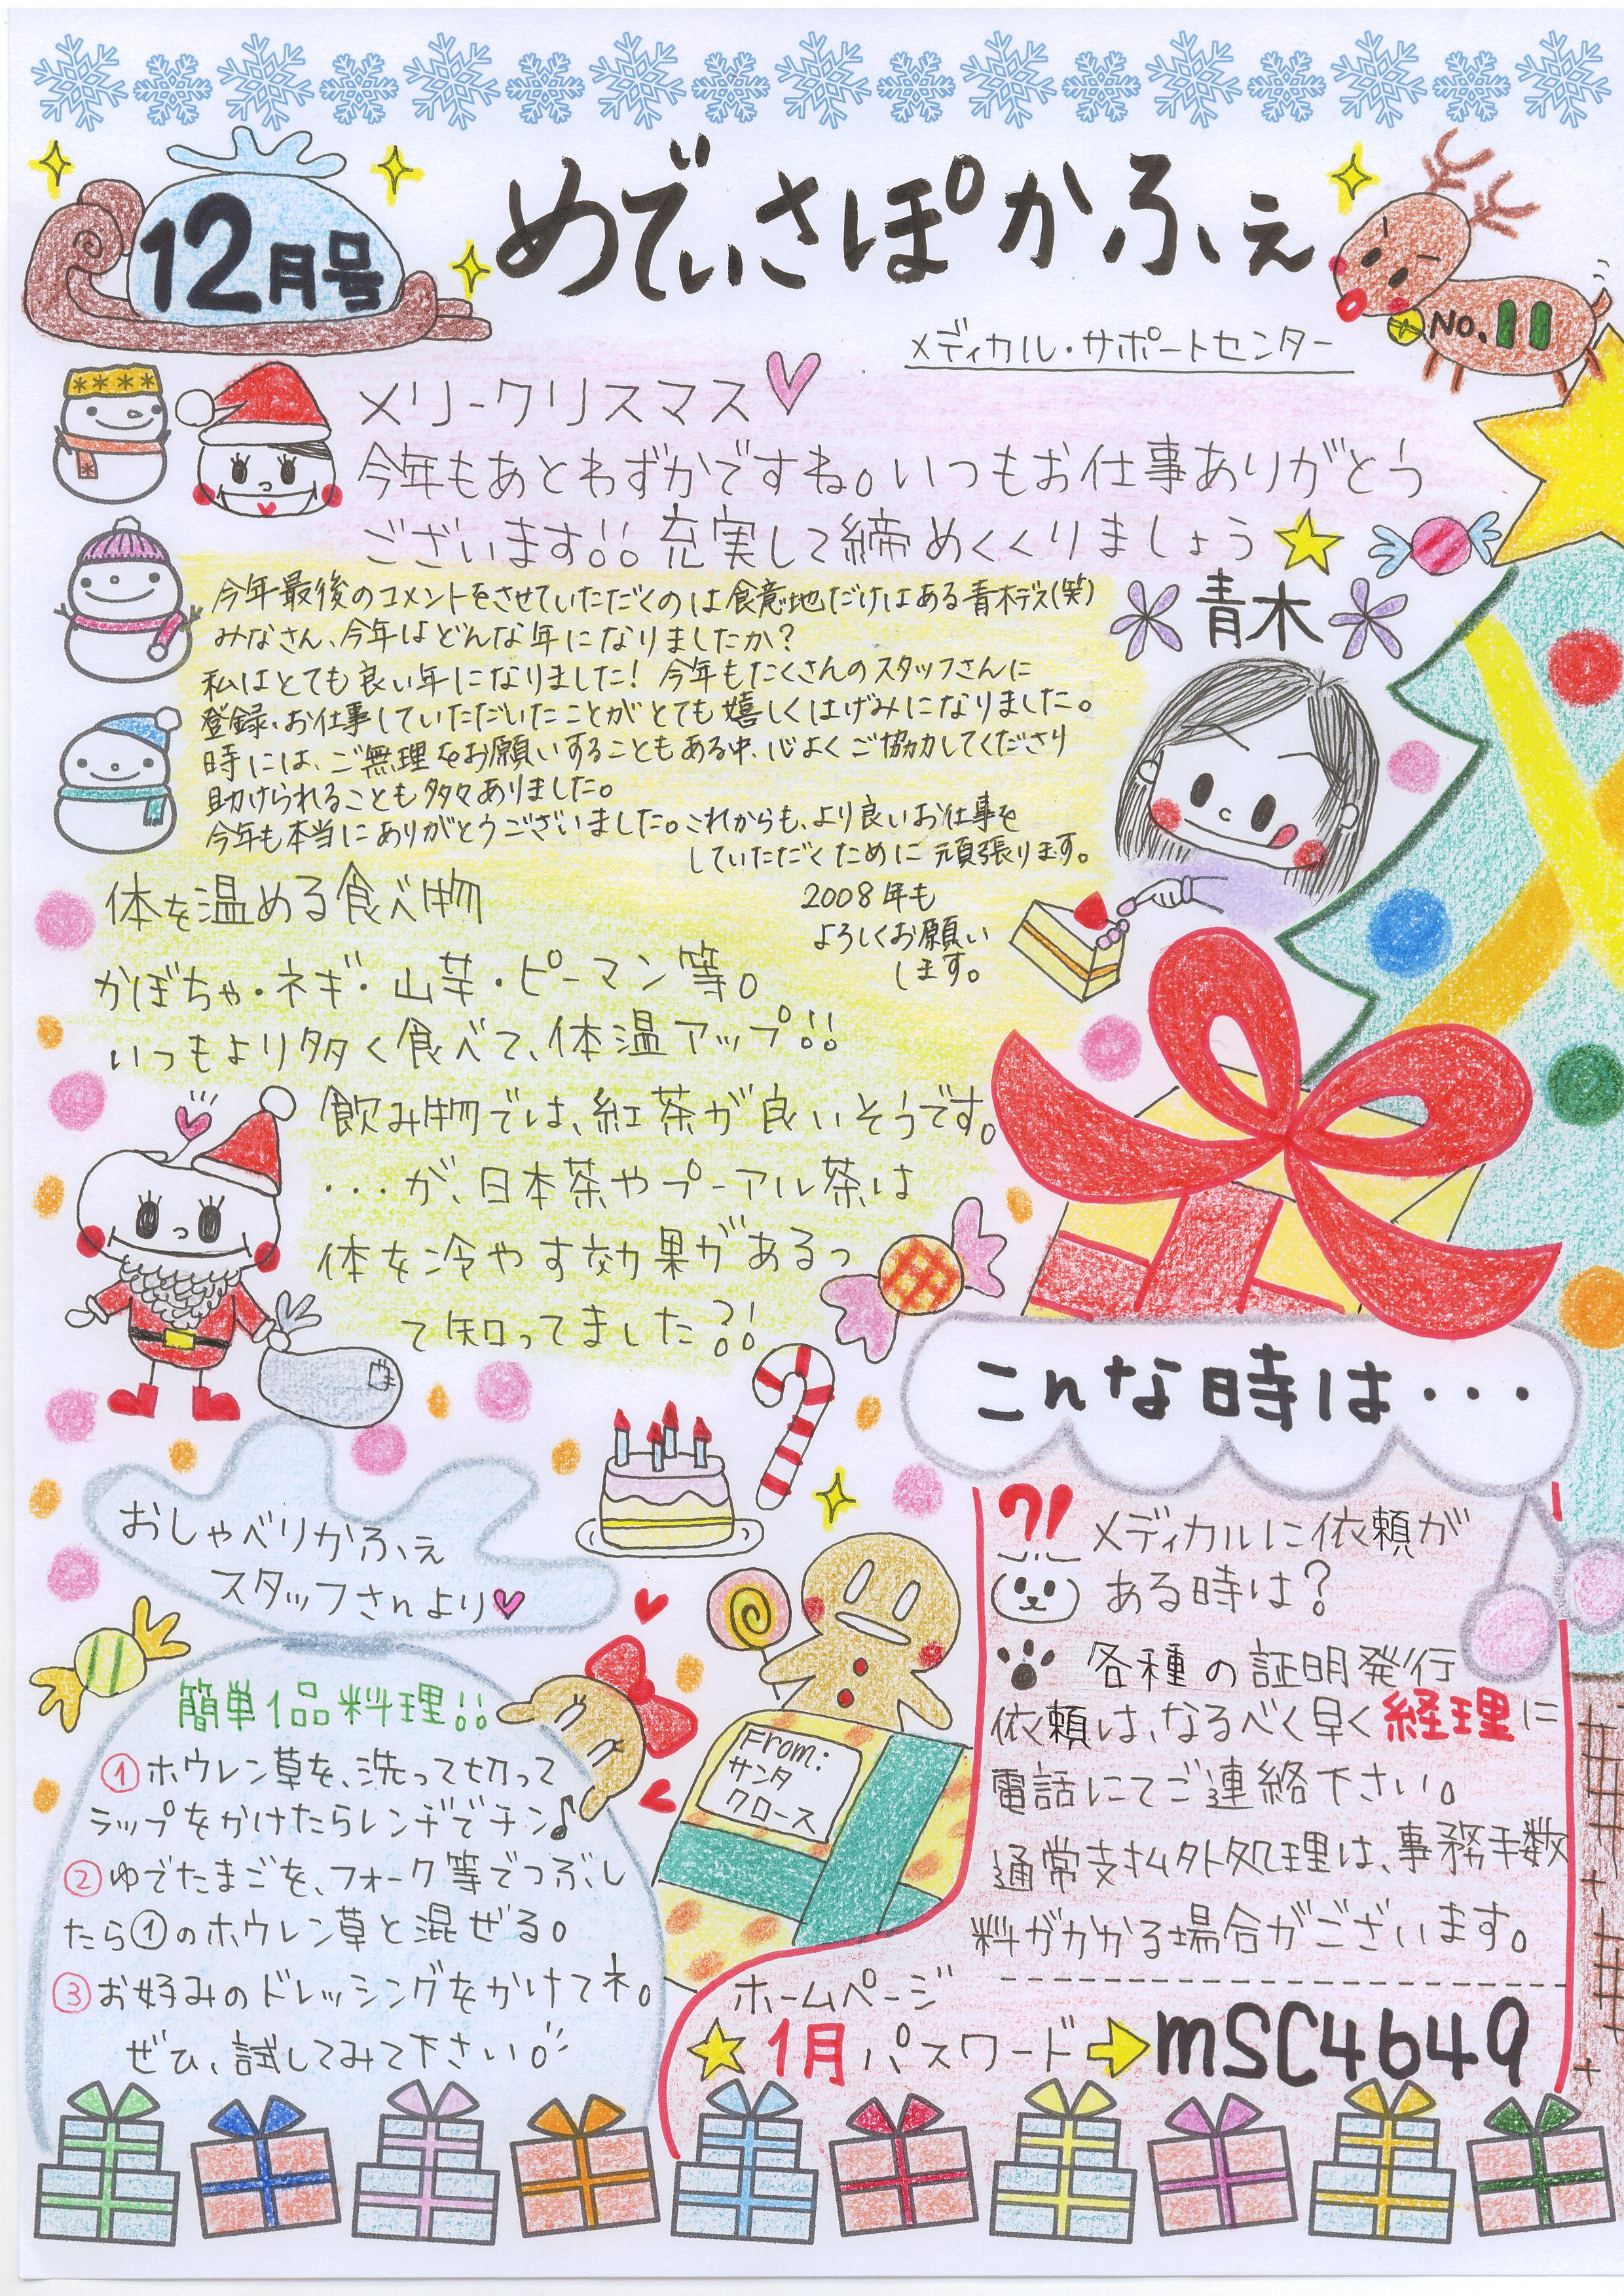 12月号
めでぃさぽかふぇ
No.11
メディカル・サポートセンター
メリークリスマス
今年もあとわずかですね。いつもお仕事ありがとう
ございます!! 充実して締めくくりましょう
青木
今年最後のコメントをさせていただくのは食意地だけはある青木デス(笑)
みなさん、今年はどんな年になりましたか?
私はとても良い年になりました! 今年もたくさんのスタッフさんに
登録、お仕事していただいたことがとても嬉しくはげみになりました。
時には、ご無理をお願いすることもある中、心よくご協力してくださり
助けられることも多々ありました。
今年も本当にありがとうございました。これからも、より良いお仕事を
していただくために頑張ります。
2008年も
よろしくお願い
します。
体を温める食べ物
かぼちゃ・ネギ・山芋・ピーマン等。
いつもより多く食べて、体温アップ!!
飲み物では、紅茶が良いそうです。
・・・が、日本茶やプーアル茶は
体を冷やす効果があるっ
て知ってました?!
おしゃべりかふぇ
スタッフさんより
簡単1品料理!!
①ホウレン草を、洗って切って
ラップをかけたらレンヂでチン♪
②ゆでたまごを、フォーク等でつぶし
たら①のホウレン草と混ぜる。
③お好みのドレッシングをかけてネ。
ぜひ、試してみて下さい。
From:
サンタ
クロース
こんな時は・・・
?! メディカルに依頼が
ある時は?
各種の証明発行
依頼は、なるべく早く経理に
電話にてご連絡下さい。
通常支払外処理は、事務手数
料がかかる場合がございます。
ホームページ
★1月パスワード⇨mSC4649